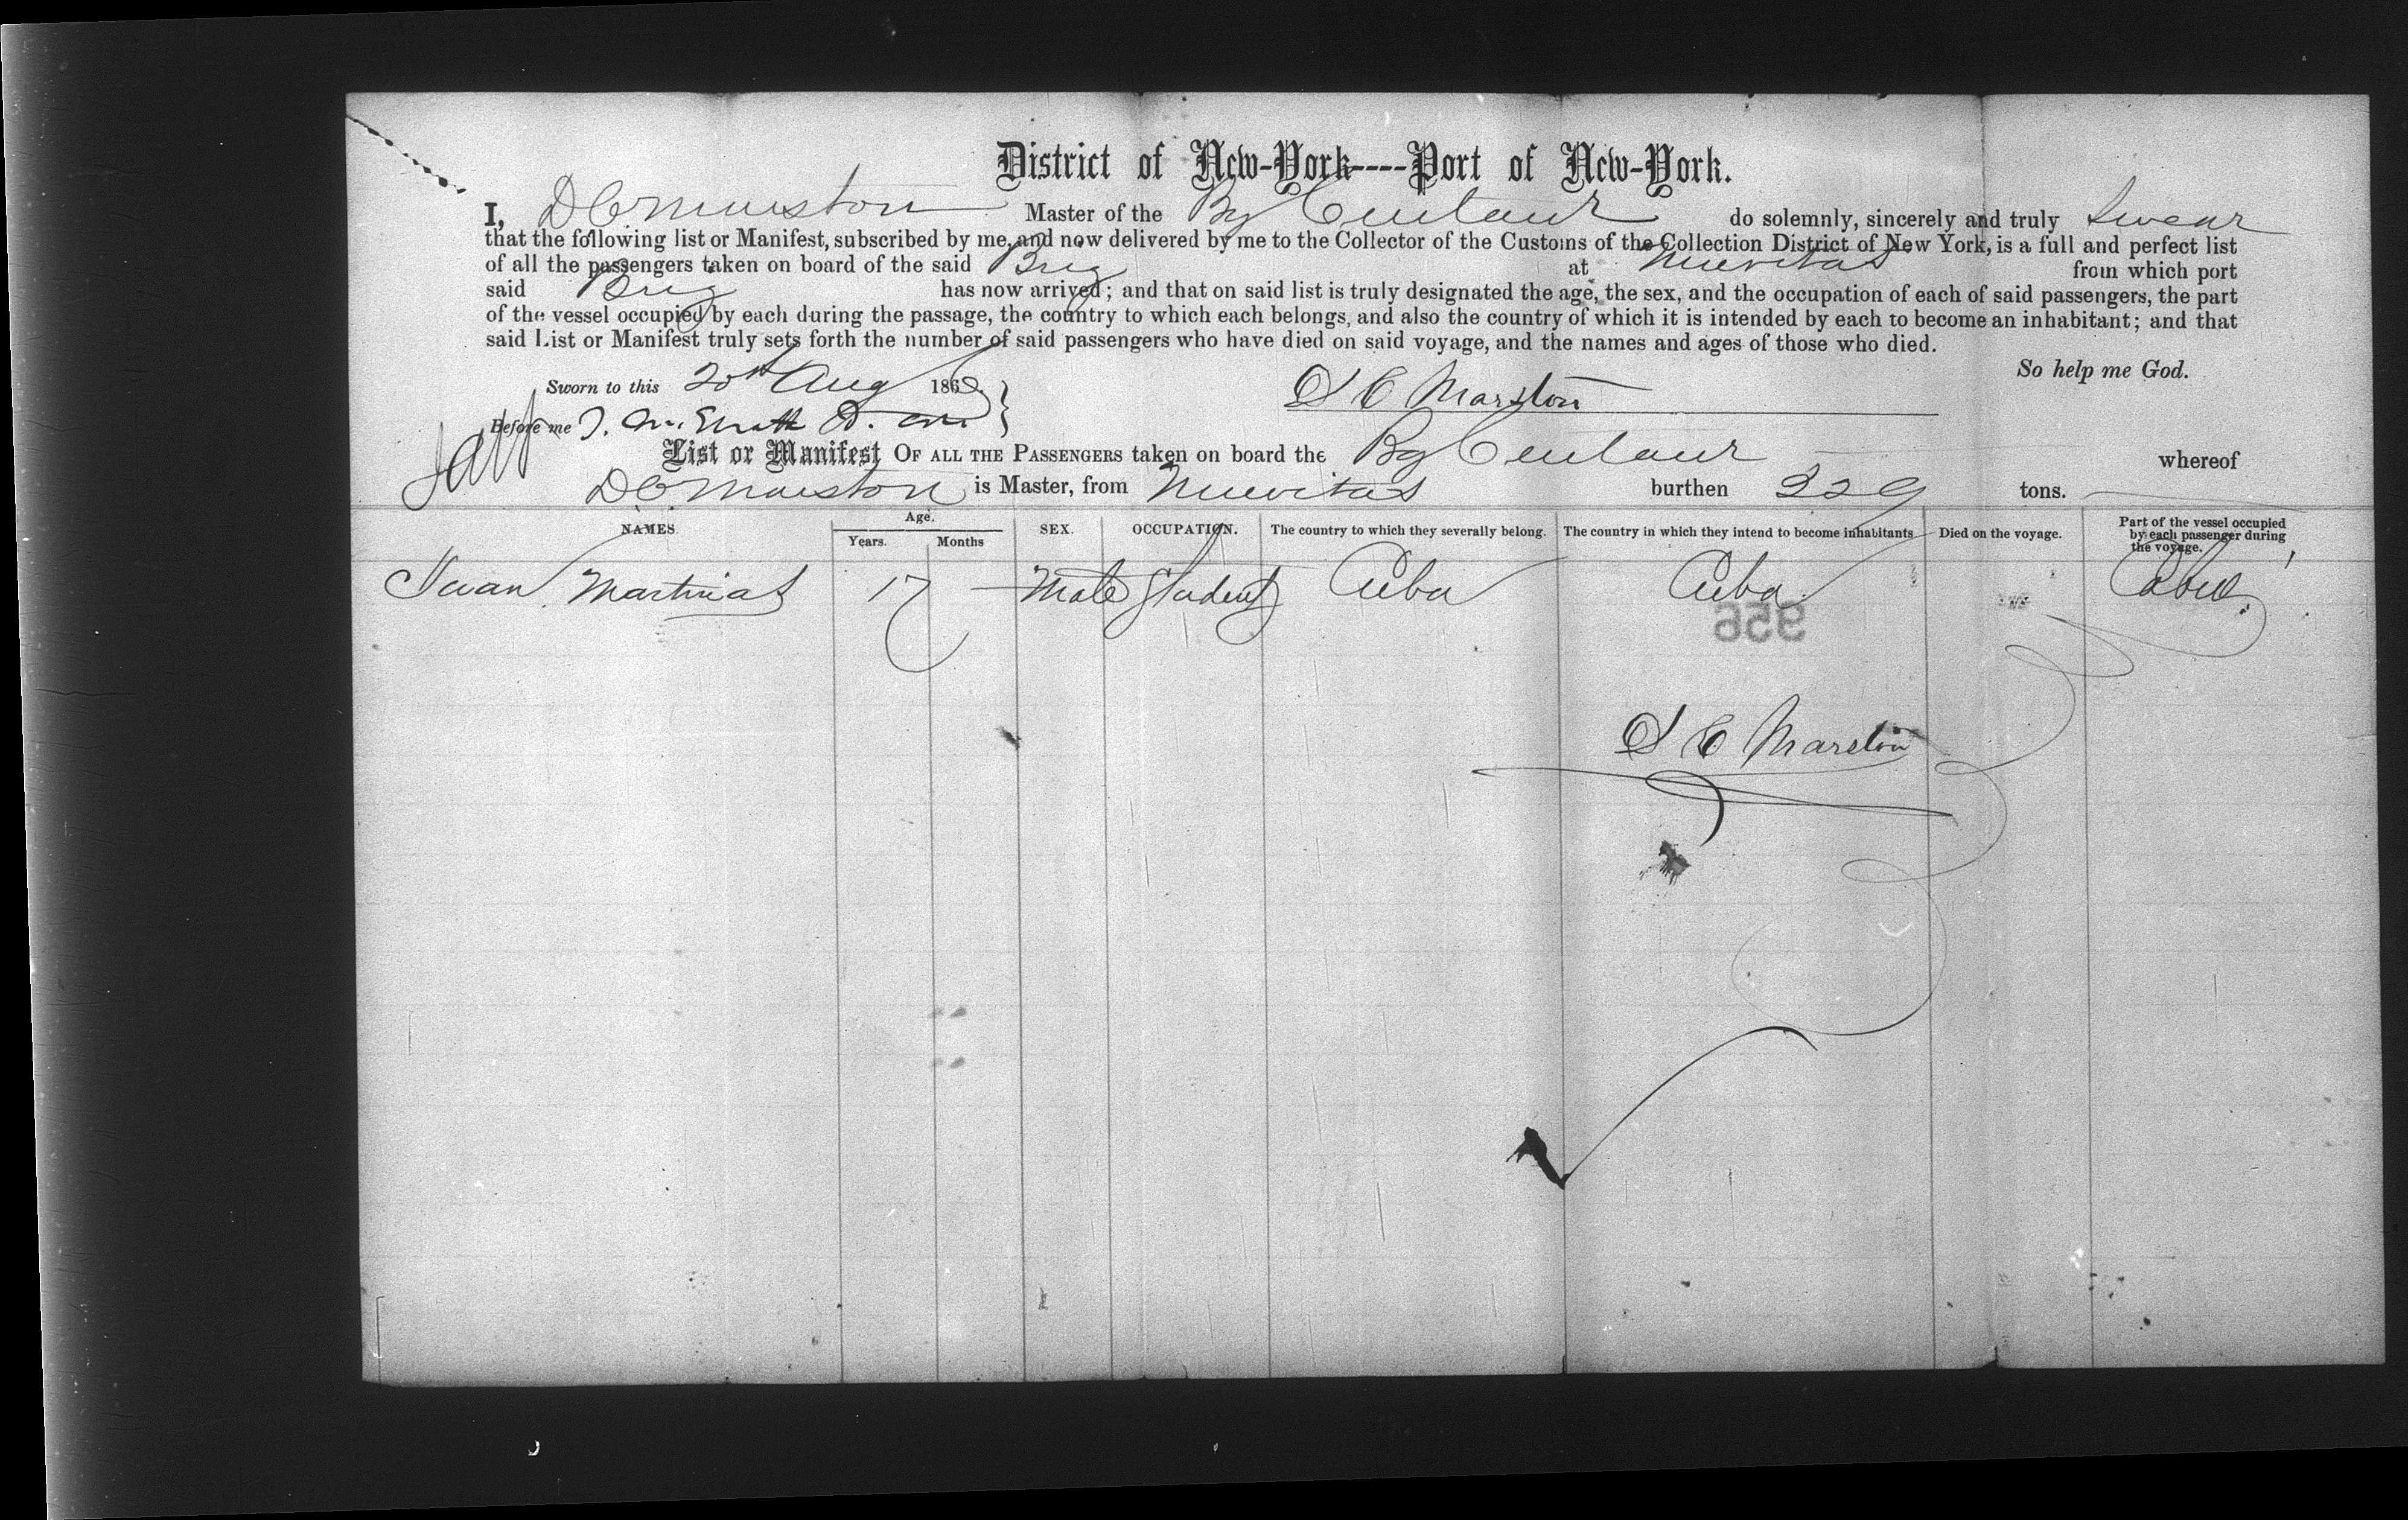 District of New-York----Port of New-York.
I, D C Marston Master of the Bg Centaur do solemnly, sincerely and truly swear
that the following list or Manifest, subscribed by me, and now delivered by me to the Collector of the Customs of the Collection District of New York, is a full and perfect list
of all the passengers taken on board of the said Brig at Nuevitas from which port
said Brig has now arrived; and that on said list is truly designated the age, the sex, and the occupation of each of said passengers, the part
of the vessel occupied by each during the passage, the country to which each belongs, and also the country of which it is intended by each to become an inhabitant; and that
said List or Manifest truly sets forth the number of said passengers who have died on said voyage, and the names and ages of those who died.
So help me God.
Sworn to this 20th Aug 186
D C Marston
Before me
List or Manifest OF ALL THE PASSENGERS taken on board the Bg Centaur whereof
D C Marston is Master, from Nuevitas burthen 329 tons.
NAMES. Age. Years. Months SEX. OCCUPATION. The country to which they severally belong. The country in which they intend to become inhabitants Died on the voyage. Part of the vessel occupied by each passenger during the voyage.
Juan Martinas 17 — Male Student Cuba Cuba Cabin
956
D C Marston